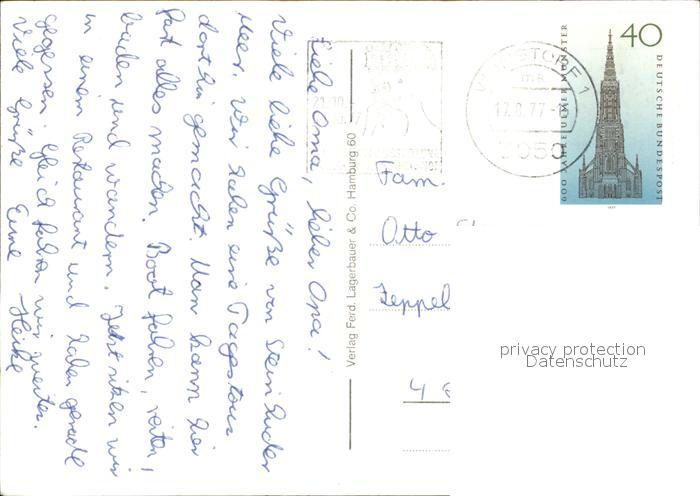 Liebe Oma, lieber Opa!
Viele liebe Grüße vom Steinhuder
Meer. Wir haben eine Tagestour
dorthin gemacht. Man kann hier
fast alles machen. Boot fahren, reiten,
baden und wandern. Jetzt sitzen wir
in einem Restaurant und haben gerade
gegessen. Gleich fahren wir weiter.
Viele Grüße Eure Heike
Verlag Ferd. Lagerbauer & Co. Hamburg 60
Fam.
Otto
Zeppel
4
WUNSTORF 1
ma
3050
40
600 JAHRE ULMER MÜNSTER
DEUTSCHE BUNDESPOST
1977
privacy protection
Datenschutz